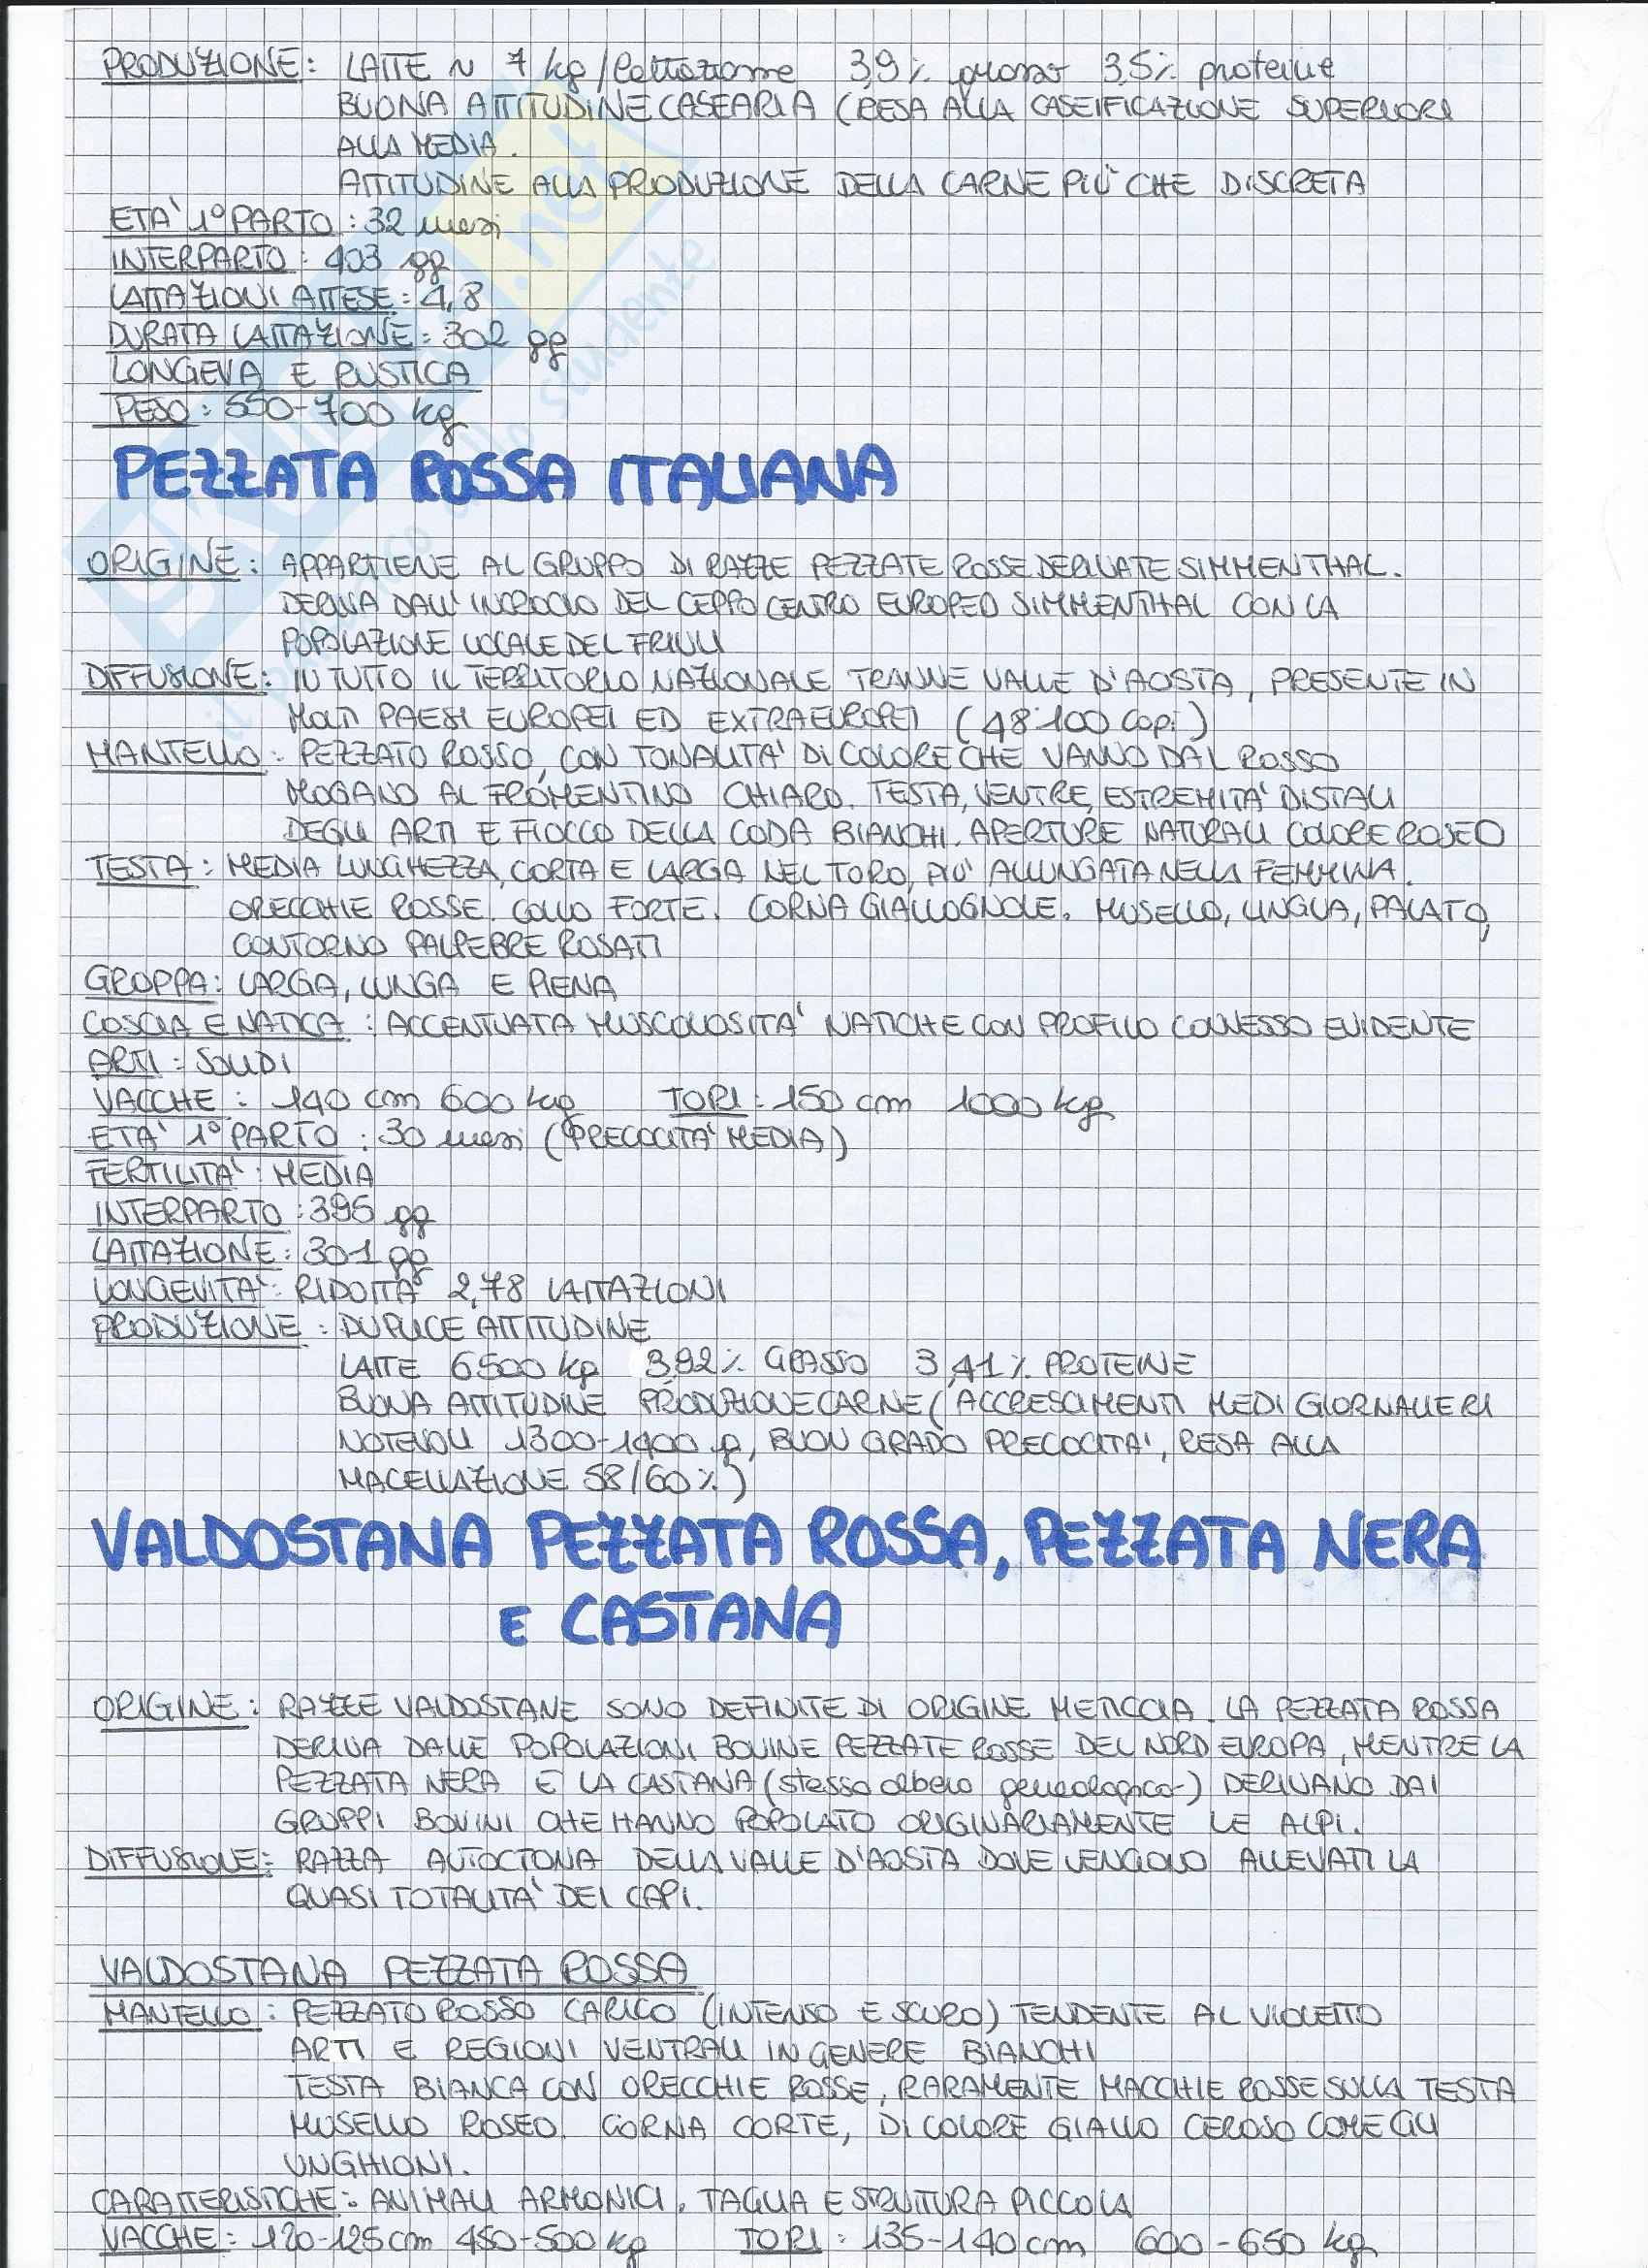 PRODUZIONE: LATTE ~ 7 kg/lattazione 3,9% grasso 3,5% proteine
BUONA ATTITUDINE CASEARIA (RESA ALLA CASEIFICAZIONE SUPERIORI
ALLA MEDIA.
ATTITUDINE ALLA PRODUZIONE DELLA CARNE PIÙ CHE DISCRETA
ETA' 1° PARTO: 32 mesi
INTERPARTO: 403 gg
LATTAZIONI ATTESE: 4,8
DURATA LATTAZIONE: 302 gg
LONGEVA E RUSTICA
PESO: 550-700 kg
PEZZATA ROSSA ITALIANA
ORIGINE: APPARTIENE AL GRUPPO DI RAZZE PEZZATE ROSSE DERIVATE SIMMENTHAL.
DERIVA DALL'INCROCIO DEL CEPPO CENTRO EUROPEO SIMMENTHAL CON LA
POPOLAZIONE LOCALE DEL FRIULI
DIFFUSIONE: IN TUTTO IL TERRITORIO NAZIONALE TRANNE VALLE D'AOSTA, PRESENTE IN
MOLTI PAESI EUROPEI ED EXTRAEUROPEI (48'100 capi)
MANTELLO: PEZZATO ROSSO, CON TONALITA' DI COLORE CHE VANNO DAL ROSSO
MOGANO AL FROMENTINO CHIARO. TESTA, VENTRE, ESTREMITA' DISTALI
DEGLI ARTI E FIOCCO DELLA CODA BIANCHI. APERTURE NATURALI COLORE ROSEO
TESTA: MEDIA LUNGHEZZA, CORTA E LARGA NEL TORO, PIU' ALLUNGATA NELLA FEMMINA.
ORECCHIE ROSSE. COLLO FORTE. CORNA GIALLOGNOLE. MUSELLO, LINGUA, PALATO,
CONTORNO PALPEBRE ROSATI
GROPPA: LARGA, LUNGA E PIENA
COSCIA E NATICA: ACCENTUATA MUSCOLOSITA' NATICHE CON PROFILO CONVESSO EVIDENTE
ARTI: SOLIDI
VACCHE: 140 cm 600 kg TORI: 150 cm 1000 kg
ETA' 1° PARTO: 30 mesi (PRECOCITA' MEDIA)
FERTILITA': MEDIA
INTERPARTO: 395 gg
LATTAZIONE: 301 gg
LONGEVITA': RIDOTTA 2,78 LATTAZIONI
PRODUZIONE: DUPLICE ATTITUDINE
LATTE 6500 kg 3,92% GRASSO 3,41% PROTEINE
BUONA ATTITUDINE PRODUZIONE CARNE (ACCRESCIMENTI MEDI GIORNALIERI
NOTEVOLI 1300-1400 g, BUON GRADO PRECOCITA', RESA ALLA
MACELLAZIONE 58/60%)
VALDOSTANA PEZZATA ROSSA, PEZZATA NERA
E CASTANA
ORIGINE: RAZZE VALDOSTANE SONO DEFINITE DI ORIGINE METICCIA. LA PEZZATA ROSSA
DERIVA DALLE POPOLAZIONI BOVINE PEZZATE ROSSE DEL NORD EUROPA, MENTRE LA
PEZZATA NERA E LA CASTANA (stesso albero genealogico) DERIVANO DAI
GRUPPI BOVINI CHE HANNO POPOLATO ORIGINARIAMENTE LE ALPI.
DIFFUSIONE: RAZZA AUTOCTONA DELLA VALLE D'AOSTA DOVE VENGONO ALLEVATI LA
QUASI TOTALITA' DEI CAPI.
VALDOSTANA PEZZATA ROSSA
MANTELLO: PEZZATO ROSSO CARICO (INTENSO E SCURO) TENDENTE AL VIOLETTO
ARTI E REGIONI VENTRALI IN GENERE BIANCHI
TESTA BIANCA CON ORECCHIE ROSSE, RARAMENTE MACCHIE ROSSE SULLA TESTA
MUSELLO ROSEO. CORNA CORTE, DI COLORE GIALLO CEROSO COME GLI
UNGHIONI.
CARATTERISTICHE: ANIMALI ARMONICI. TAGLIA E STRUTTURA PICCOLA
VACCHE: 120-125 cm 450-500 kg TORI: 135-140 cm 600-650 kg